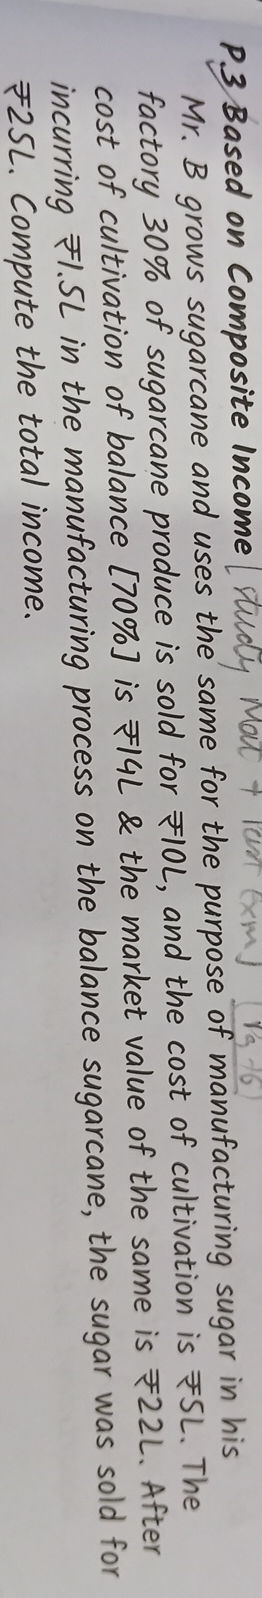 P.3 Based on Composite Income [Study Mat + Exm] (Pg 76)
Mr. B grows sugarcane and uses the same for the purpose of manufacturing sugar in his
factory 30% of sugarcane produce is sold for ₹10L, and the cost of cultivation is ₹5L. The
cost of cultivation of balance [70%] is ₹14L & the market value of the same is ₹22L. After
incurring ₹1.5L in the manufacturing process on the balance sugarcane, the sugar was sold for
₹25L. Compute the total income.